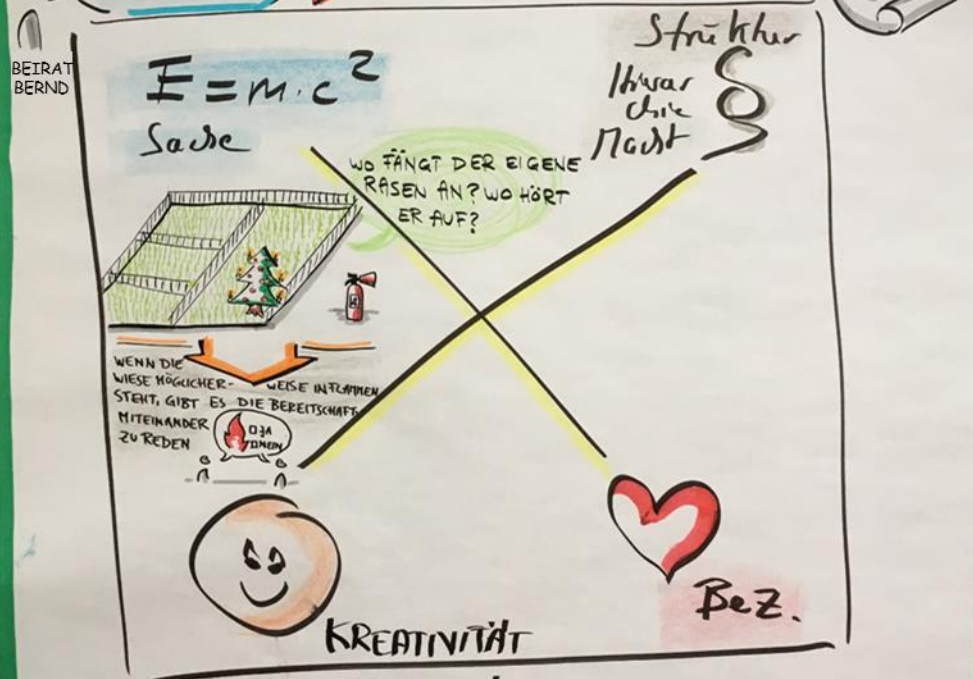 BEIRAT
BERND
E = m · c²
Sache
Struktur
Hirar
chie
Macht
§
WO FÄNGT DER EIGENE
RASEN AN? WO HÖRT
ER AUF?
WENN DIE
WIESE MÖGLICHER- WEISE IN FLAMMEN
STEHT, GIBT ES DIE BEREITSCHAFT
MITEINANDER
ZU REDEN
JA
NEIN
KREATIVITÄT
Bez.